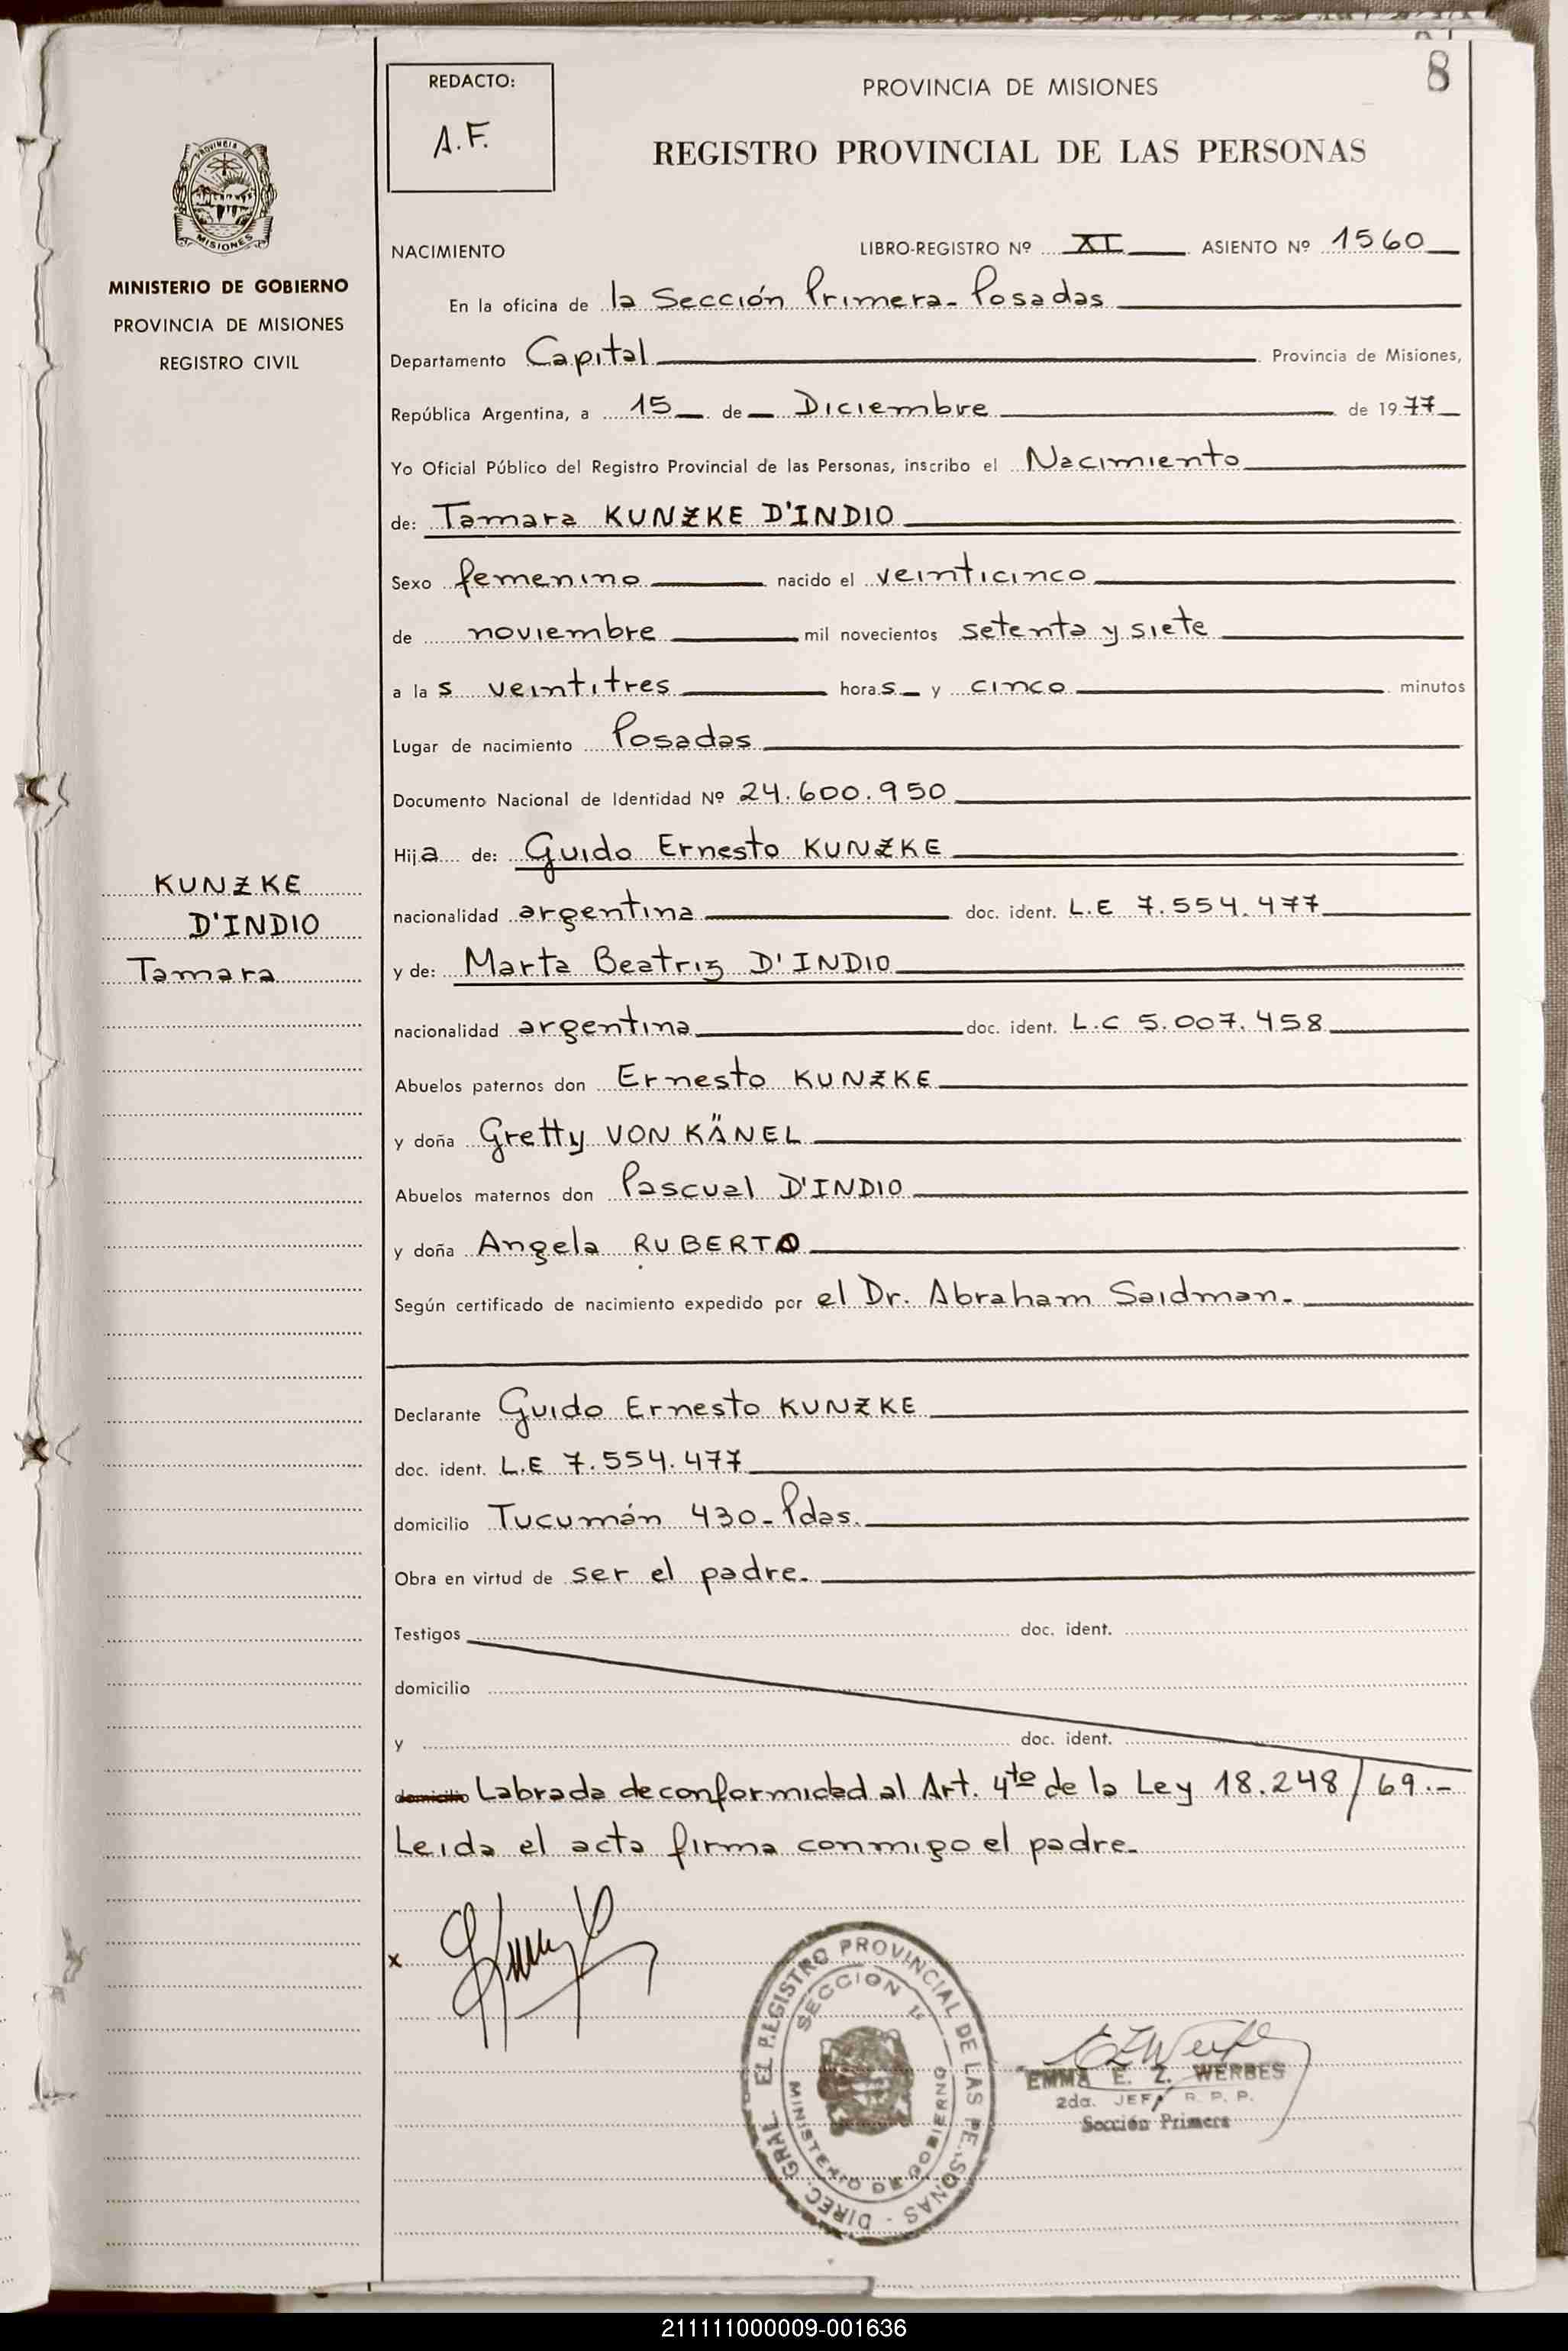 8
REDACTO:
A.F.
PROVINCIA DE MISIONES
REGISTRO PROVINCIAL DE LAS PERSONAS
PROVINCIA
MISIONES
MINISTERIO DE GOBIERNO
PROVINCIA DE MISIONES
REGISTRO CIVIL
KUNZKE
D'INDIO
Tamara
NACIMIENTO LIBRO-REGISTRO Nº XI ASIENTO Nº 1560
En la oficina de la Sección Primera- Posadas
Departamento Capital Provincia de Misiones,
República Argentina, a 15 de Diciembre de 1977
Yo Oficial Público del Registro Provincial de las Personas, inscribo el Nacimiento
de: Tamara KUNZKE D'INDIO
Sexo femenino nacido el veinticinco
de noviembre mil novecientos setenta y siete
a las veintitres horas y cinco minutos
Lugar de nacimiento Posadas
Documento Nacional de Identidad Nº 24.600.950
Hija de: Guido Ernesto KUNZKE
nacionalidad argentina doc. ident. L.E 7.554.477
y de: Marta Beatriz D'INDIO
nacionalidad argentina doc. ident. L.C 5.007.458
Abuelos paternos don Ernesto KUNZKE
y doña Gretty VON KÄNEL
Abuelos maternos don Pascual D'INDIO
y doña Angela RUBERTO
Según certificado de nacimiento expedido por el Dr. Abraham Saidman.
Declarante Guido Ernesto KUNZKE
doc. ident. L.E 7.554.477
domicilio Tucumán 430- Pdas.
Obra en virtud de ser el padre.
Testigos doc. ident.
domicilio
y doc. ident.
domicilio Labrada de conformidad al Art. 4to de la Ley 18.248/69.-
Leida el acta firma conmigo el padre.
x
DIREC. GRAL. EL REGISTRO PROVINCIAL DE LAS PERSONAS -
SECCION 1ª
MINISTERIO DE GOBIERNO
EMMA E. Z. WERBES
2da. JEFA R. P. P.
Sección Primera
211111000009-001636